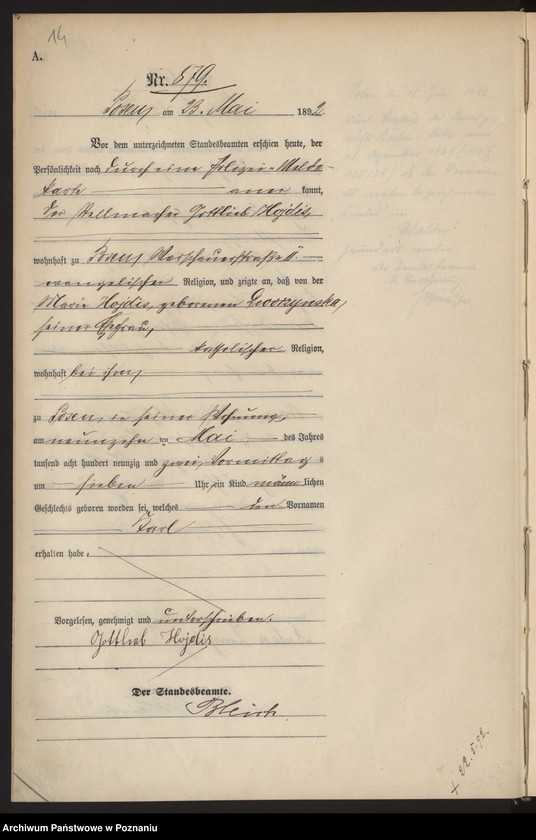 14
A.
Nr. 879.
Posen am 23. Mai 1892.
Vor dem unterzeichneten Standesbeamten erschien heute, der
Persönlichkeit nach durch eine Polizei-Melde-
karte anerkannt,
der Stellmacher Gottlieb Hojdis,
wohnhaft zu Posen, Warschauerstraße
evangelischer Religion, und zeigte an, daß von der
Marie Hojdis, geborenen Dworzynska,
seiner Ehefrau,
katholischer Religion,
wohnhaft bei ihm,
zu Posen, in seiner Wohnung,
am neunzehnten Mai des Jahres
tausend acht hundert neunzig und zwei, Vormittags
um sieben Uhr, ein Kind männlichen
Geschlechts geboren worden sei, welches den Vornamen
Karl
erhalten habe.
Vorgelesen, genehmigt und unterschrieben.
Gottlieb Hojdis
Der Standesbeamte.
† 22.5.92.
Archiwum Państwowe w Poznaniu